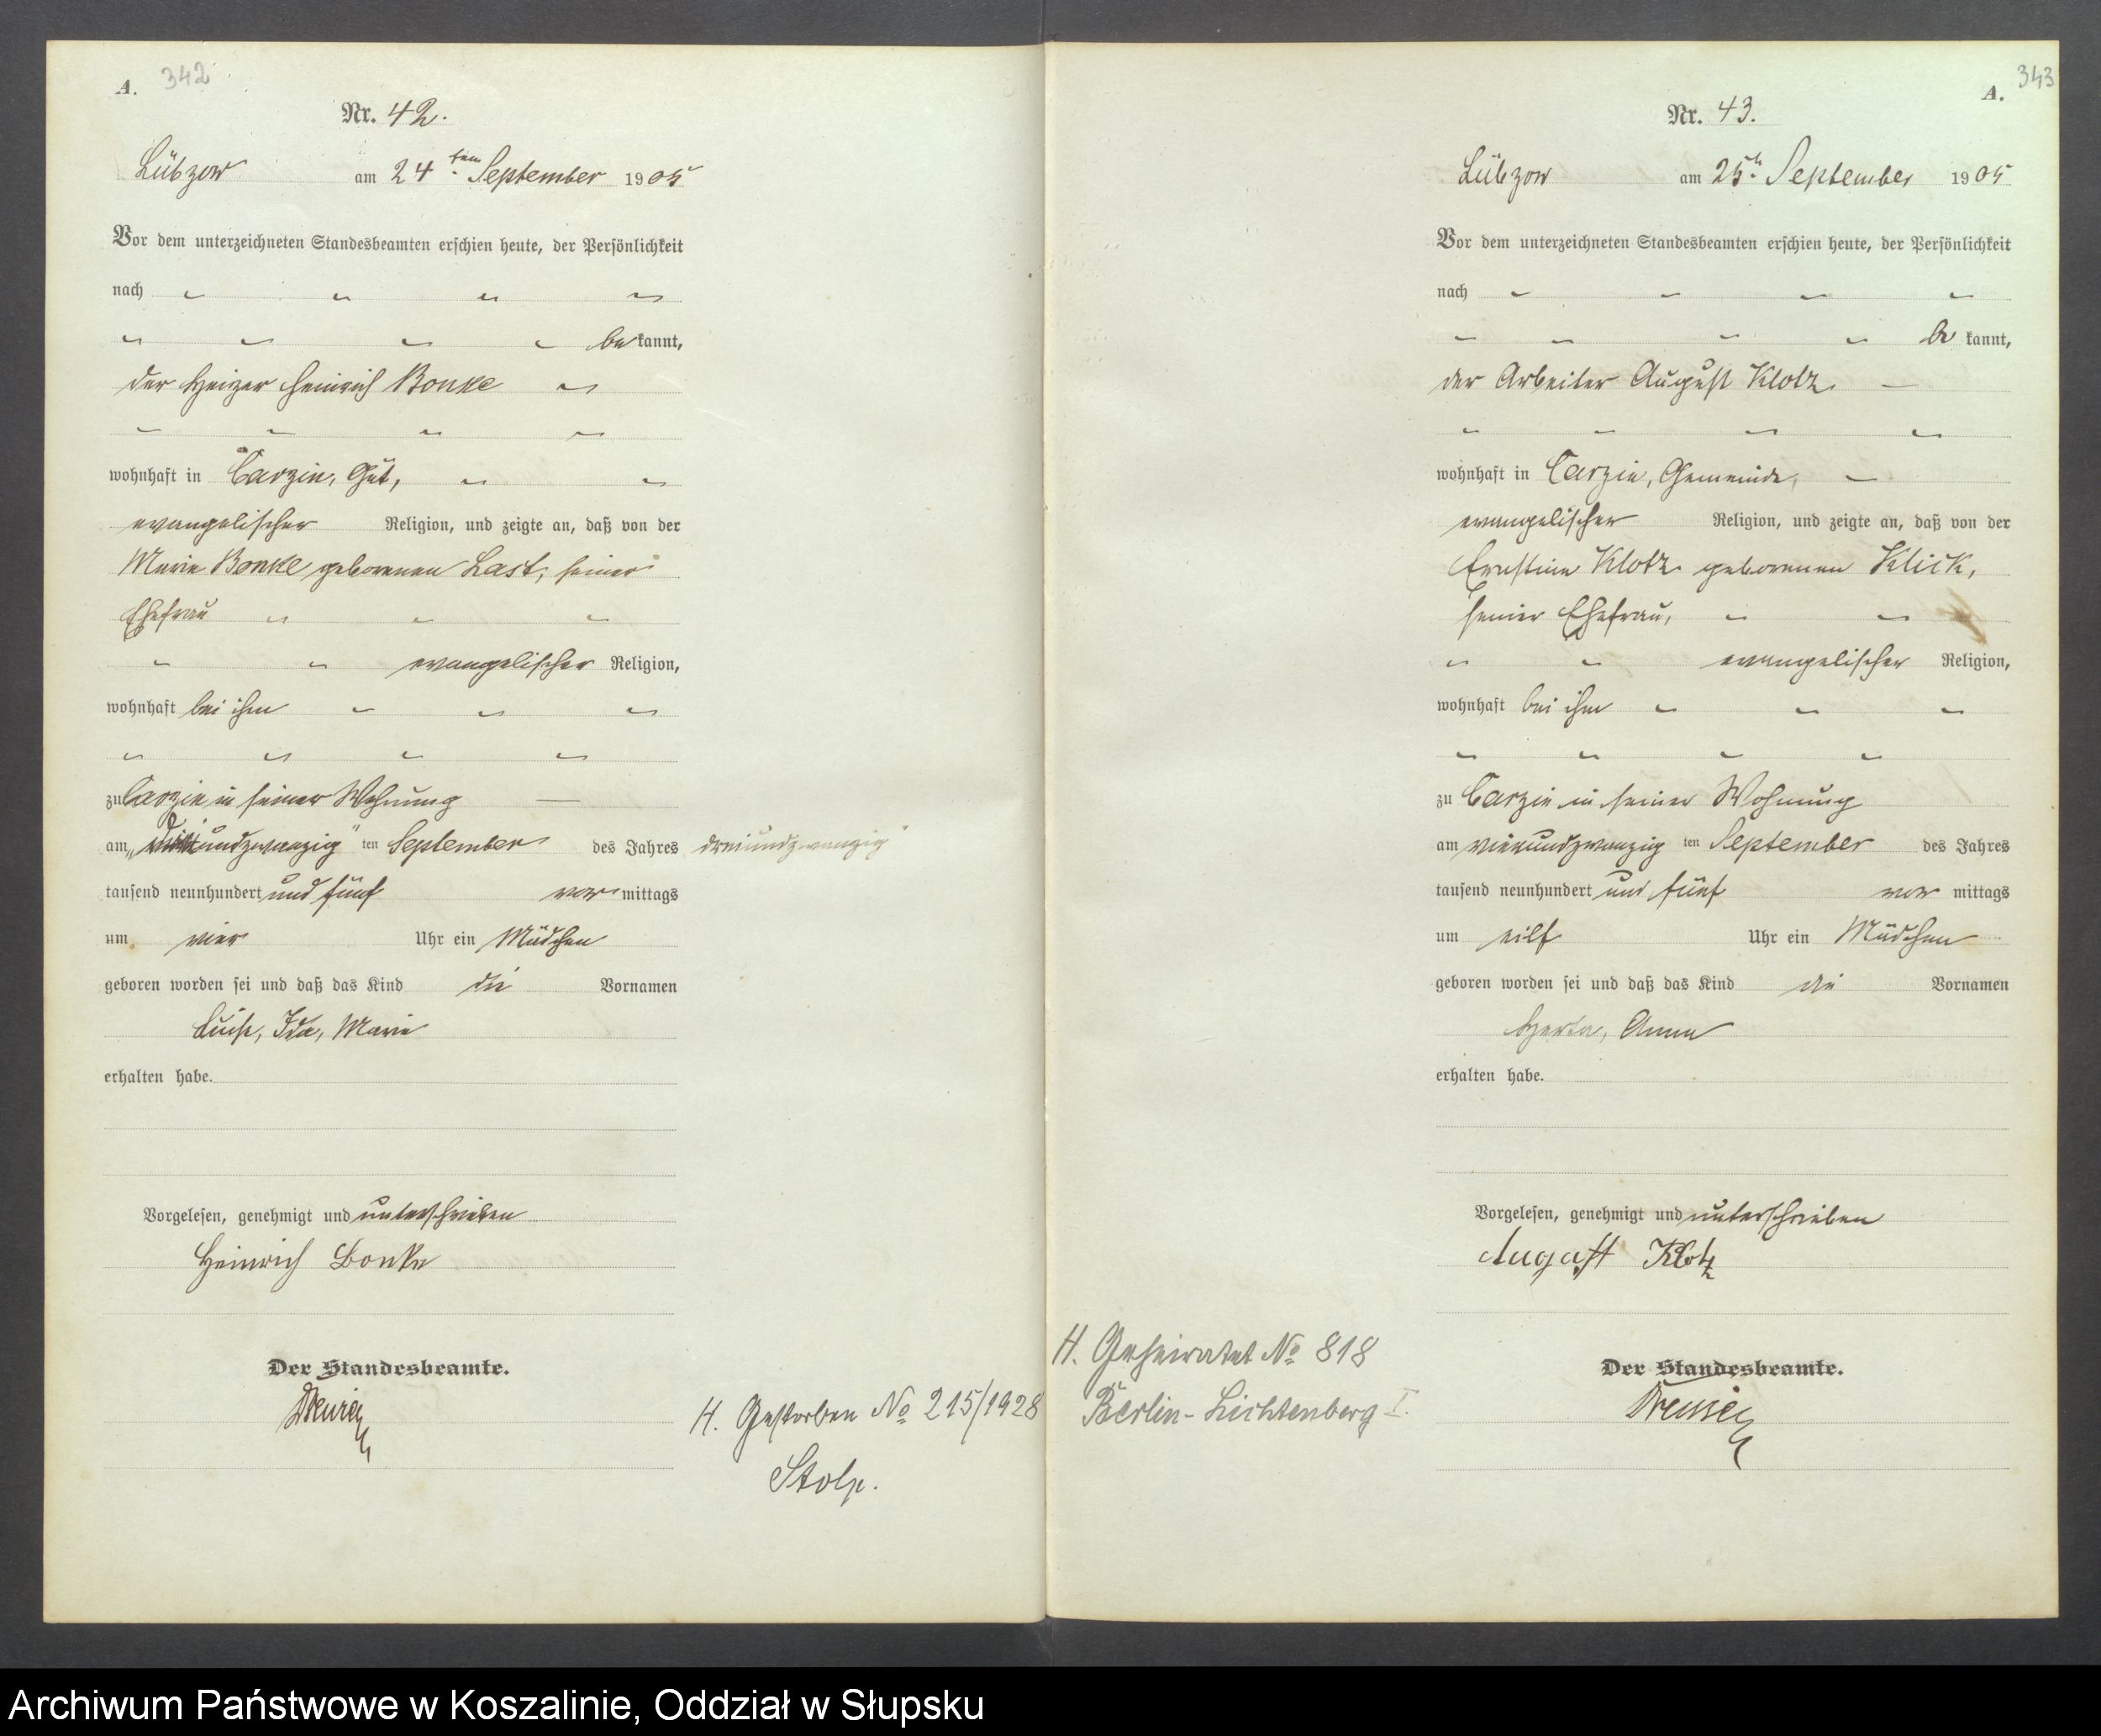 A. 342
Nr. 42.
Lübzow am 24ten September 1905
Vor dem unterzeichneten Standesbeamten erschien heute, der Persönlichkeit
nach
be kannt,
der Heizer Heinrich Bonke
wohnhaft in Carzin, Gut,
evangelischer Religion, und zeigte an, daß von der
Marie Bonke geborenen Last, seiner
Ehefrau
evangelischer Religion,
wohnhaft bei ihm
zu Carzin in seiner Wohnung
am „ undzwanzig" ten September des Jahres dreiundzwanzig"
tausend neunhundert und fünf vor mittags
um vier Uhr ein Mädchen
geboren worden sei und daß das Kind die Vornamen
Luise, Ida, Marie
erhalten habe.
Vorgelesen, genehmigt und unterschrieben
Heinrich Bonke
Der Standesbeamte.
H. Gestorben No 215/1928
Stolp.
A. 343
Nr. 43.
Lübzow am 25t. September 1905
Vor dem unterzeichneten Standesbeamten erschien heute, der Persönlichkeit
nach
be kannt,
der Arbeiter August Klotz
wohnhaft in Carzin, Gemeinde,
evangelischer Religion, und zeigte an, daß von der
Ernstine Klotz geborenen Klick,
seiner Ehefrau,
evangelischer Religion,
wohnhaft bei ihm
zu Carzin in seiner Wohnung
am vierundzwanzig ten September des Jahres
tausend neunhundert und fünf vor mittags
um eilf Uhr ein Mädchen
geboren worden sei und daß das Kind die Vornamen
Herta, Anna
erhalten habe.
Vorgelesen, genehmigt und unterschrieben
August Klotz
H. Geheiratet No 818
Berlin-Lichtenberg I.
Der Standesbeamte.
Archiwum Państwowe w Koszalinie, Oddział w Słupsku